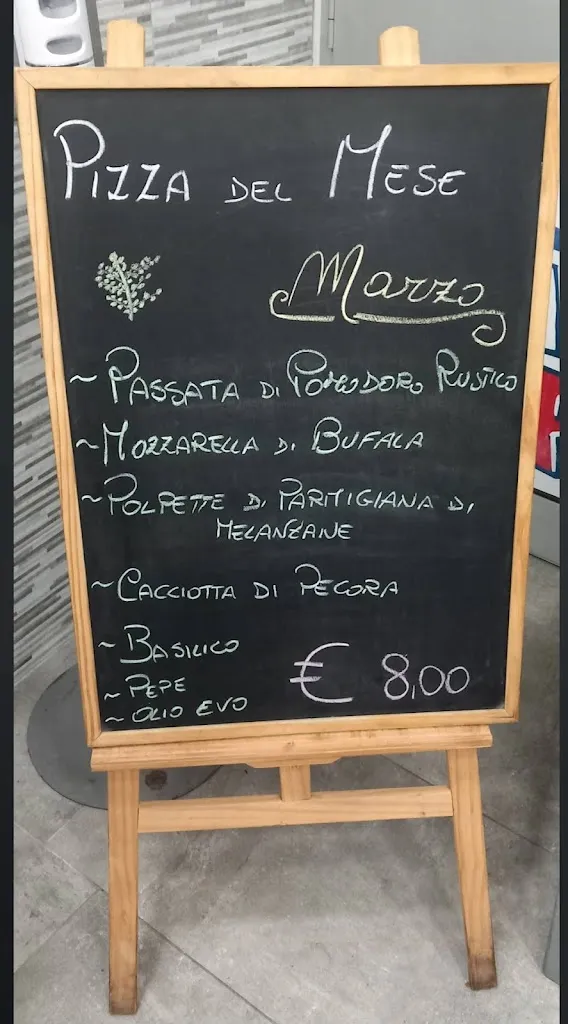 PIZZA DEL MESE
Marzo
~ PASSATA DI POMODORO RUSTICO
~ MOZZARELLA DI BUFALA
~ POLPETTE DI PARMIGIANA DI
MELANZANE
~ CACCIOTTA DI PECORA
~ BASILICO
~ PEPE
~ OLIO EVO
€ 8,00